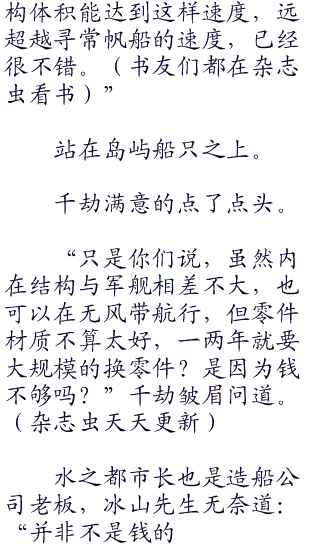 构体积能达到这样速度，远
超越寻常帆船的速度，已经
很不错。（书友们都在杂志
虫看书）”
站在岛屿船只之上。
千劫满意的点了点头。
“只是你们说，虽然内
在结构与军舰相差不大，也
可以在无风带航行，但零件
材质不算太好，一两年就要
大规模的换零件？是因为钱
不够吗？”千劫皱眉问道。
（杂志虫天天更新）
水之都市长也是造船公
司老板，冰山先生无奈道：
“并非不是钱的